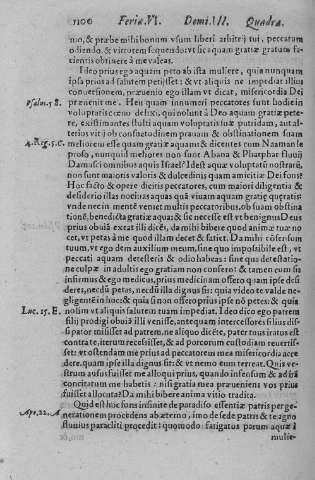 1100 Feria. VI. Domi. III. Quadra.
mo, & præbe mihi bonum vsum liberi arbitrij tui, peccatum
odiendo, & virtutem sequendo: vt sic aquam gratiæ gratum fa-
cientis obtinere à me valeas.
Ideo prius ego aquam peto ab ista muliere, quia nunquam
ipsa prius ad salutem petijsset: & vt aliquis ne impediat illius
conuersionem, præuenio ego illam vt dicat, misericordia Dei
Psalm. 58. præuenit me. Heu quam innumeri peccatores sunt hodie in
voluptatis cœno dediti, qui nolunt à Deo aquam gratiæ pete-
re, existimantes stulti aquam voluptatis suæ putridam, aut al-
terius vitij ob consuetudinem prauam & obstinationem suam
4. Reg. 5. C. meliorem esse quam gratiæ aquam: & dicentes cum Naaman le
proso, nunquid meliores non sunt Abana & Pharphar fluuij
Damasci omnibus aquis Israel? Idest aquæ voluptatū nostrarū,
non sunt maioris valoris & dulcedinis quam amicitiæ Dei fons?
Hoc facto & opere dicitis peccatores, cum maiori diligentia &
desiderio illas noctiuas aquas quā viuam aquam gratiæ queratis:
vnde necin mentē venit multis peccatoribus, ob suam obstina
tionē, benedicta gratiæ aqua: & sic necesse est vt benignus Deus
prius obuiā exeat illi dicēs, da mihi bibere quod animæ tuæ no
cet, vt petas à me quod illam decet & satiet. Da mihi cōsensum
tuum, vt ego dem auxilium meum, sine quo impossibile est, vt
peccati aquam detesteris & odio habeas: sine qua detestatio-
ne culpæ in adultis ego gratiam non confero: & tamen cum sis
infirmus & ego medicus, prius medicinam offero quam ipse desi
deres, necdū petas, necdū illa dignus sis: quia video te valde ne-
gligentē in hoc: & quia si non offero prius ipse nō petes: & quia
Luc. 15. E. nolim vt aliquis salutem tuam impediat. Ideo dico ego patrem
filij prodigi obuiā illi venisse, antequam intercessores filius dis-
sipator misisset ad patrem, ne aliquo dicēte, pater tuus iratus est
contra te, iterum recessisset, & ad porcorum custodiam reuertis-
set: vt ostendam me prius ad peccatorem mea misericordia acce
dere, quam ipse illa dignus sit: & vt nemo eum terreat. Quis ve-
strum ausus fuisset me alloqui prius, quando insensum & aduersū
concitatum me habetis: nisi gratia mea præueniens vos prius
fuisset allocuta? Da mihi bibere anima vitio tradita.
Apo. 22. A Quid est hoc fons infinite de paradiso essentiæ patris per ge-
nerationem procedens abæterno, imo de sede patris & te agno
fluuius paracliti procedit: quomodo fatigatus potum aquæ à
mulie-